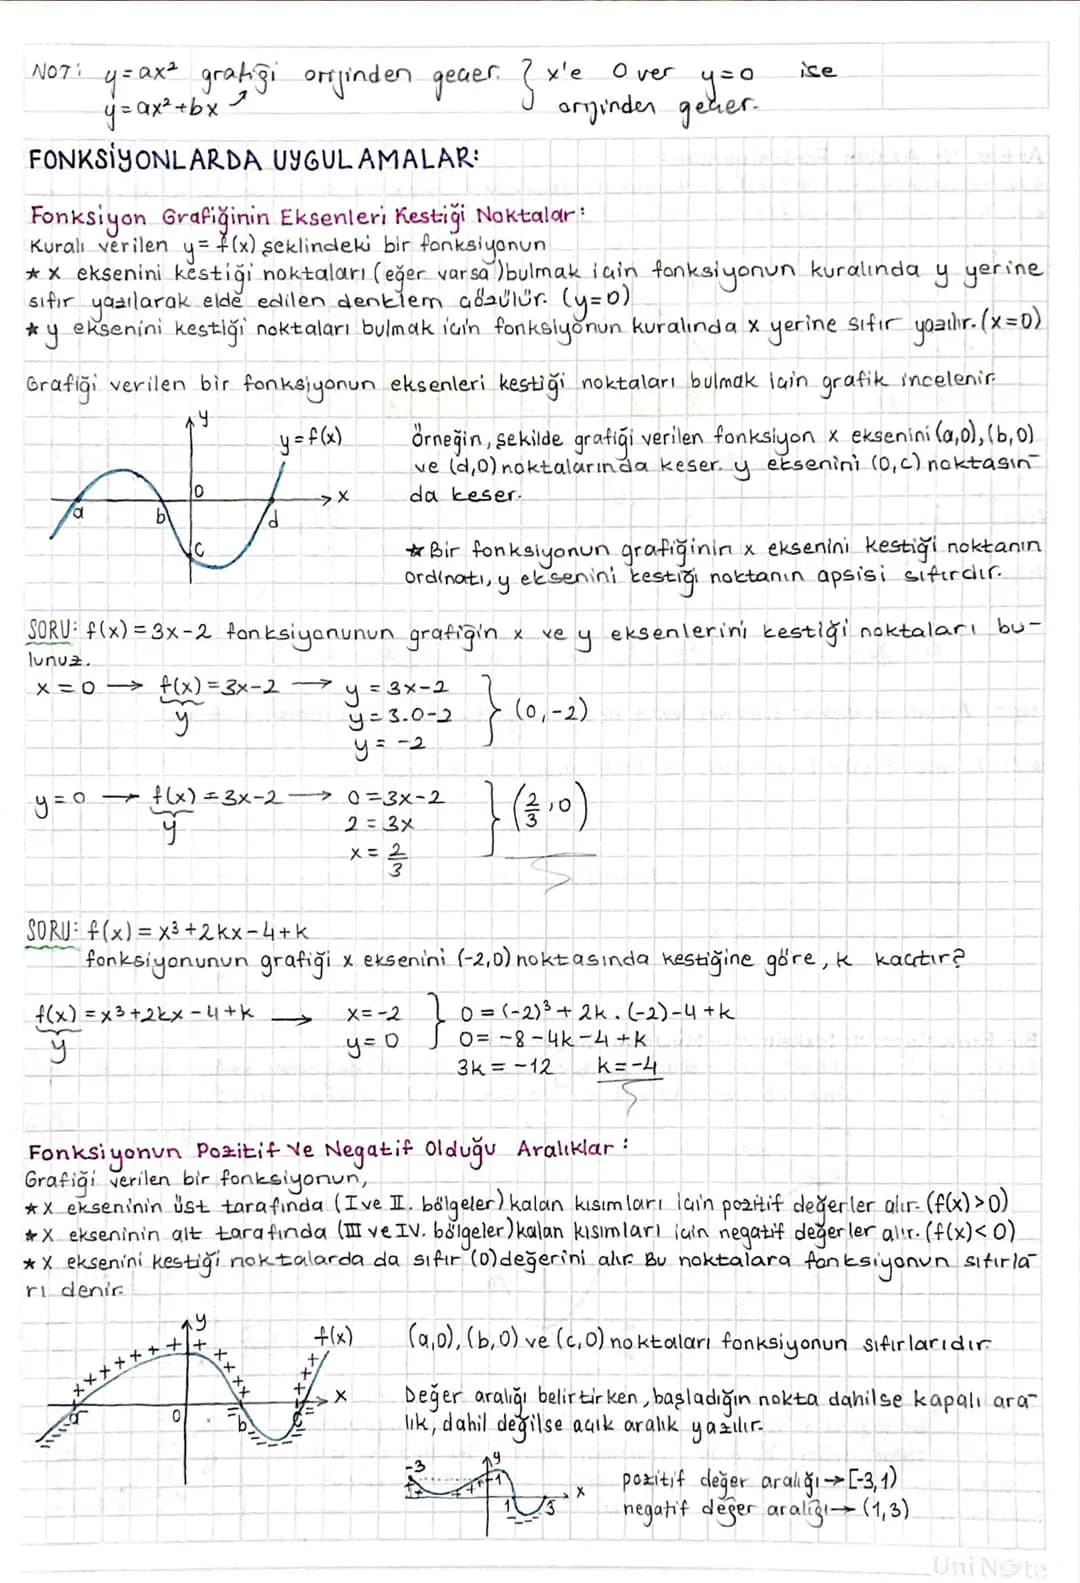 NOT: y=ax² grafiği orijinden geçer. } x'e 0 ver y=0 ise
y=ax²+bx ↗ orijinden geçer.
FONKSİYONLARDA UYGULAMALAR:
Fonksiyon Grafiğinin Eksenleri Kestiği Noktalar:
Kuralı verilen y=f(x) şeklindeki bir fonksiyonun
★ x eksenini kestiği noktaları (eğer varsa) bulmak için fonksiyonun kuralında y yerine
sıfır yazılarak elde edilen denklem çözülür. (y=0)
★ y eksenini kestiği noktaları bulmak için fonksiyonun kuralında x yerine sıfır yazılır. (x=0)
Grafiği verilen bir fonksiyonun eksenleri kestiği noktaları bulmak için grafik incelenir.
y
y=f(x)
0
x
a
b
d
c
Örneğin, şekilde grafiği verilen fonksiyon x eksenini (a,0), (b,0)
ve (d,0) noktalarında keser. y eksenini (0,c) noktasın-
da keser.
★ Bir fonksiyonun grafiğinin x eksenini kestiği noktanın
ordinatı, y eksenini kestiği noktanın apsisi sıfırdır.
SORU: f(x)=3x-2 fonksiyonunun grafiğin x ve y eksenlerini kestiği noktaları bu-
lunuz.
x=0 → f(x)=3x-2 → y=3x-2
y y=3.0-2 } (0,-2)
y=-2
y=0 → f(x)=3x-2 → 0=3x-2
y 2=3x } (2/3,0)
x=2/3
SORU: f(x)=x³+2kx-4+k
fonksiyonunun grafiği x eksenini (-2,0) noktasında kestiğine göre, k kaçtır?
f(x)=x³+2kx-4+k → x=-2 } 0=(-2)³+2k.(-2)-4+k
y y=0 0=-8-4k-4+k
3k=-12 k=-4
Fonksiyonun Pozitif Ve Negatif Olduğu Aralıklar:
Grafiği verilen bir fonksiyonun,
★ X ekseninin üst tarafında (I ve II. bölgeler) kalan kısımları için pozitif değerler alır. (f(x)>0)
★ X ekseninin alt tarafında (III ve IV. bölgeler) kalan kısımları için negatif değerler alır. (f(x)<0)
★ X eksenini kestiği noktalarda da sıfır (0) değerini alır. Bu noktalara fonksiyonun sıfırla-
rı denir.
y
f(x)
x
a
0
b
c
(a,0), (b,0) ve (c,0) noktaları fonksiyonun sıfırlarıdır.
Değer aralığı belirtirken, başladığın nokta dahilse kapalı ara-
lık, dahil değilse açık aralık yazılır.
-3
y
1
x
1
3
pozitif değer aralığı → [-3,1)
negatif değer aralığı → (1,3)
UniNote